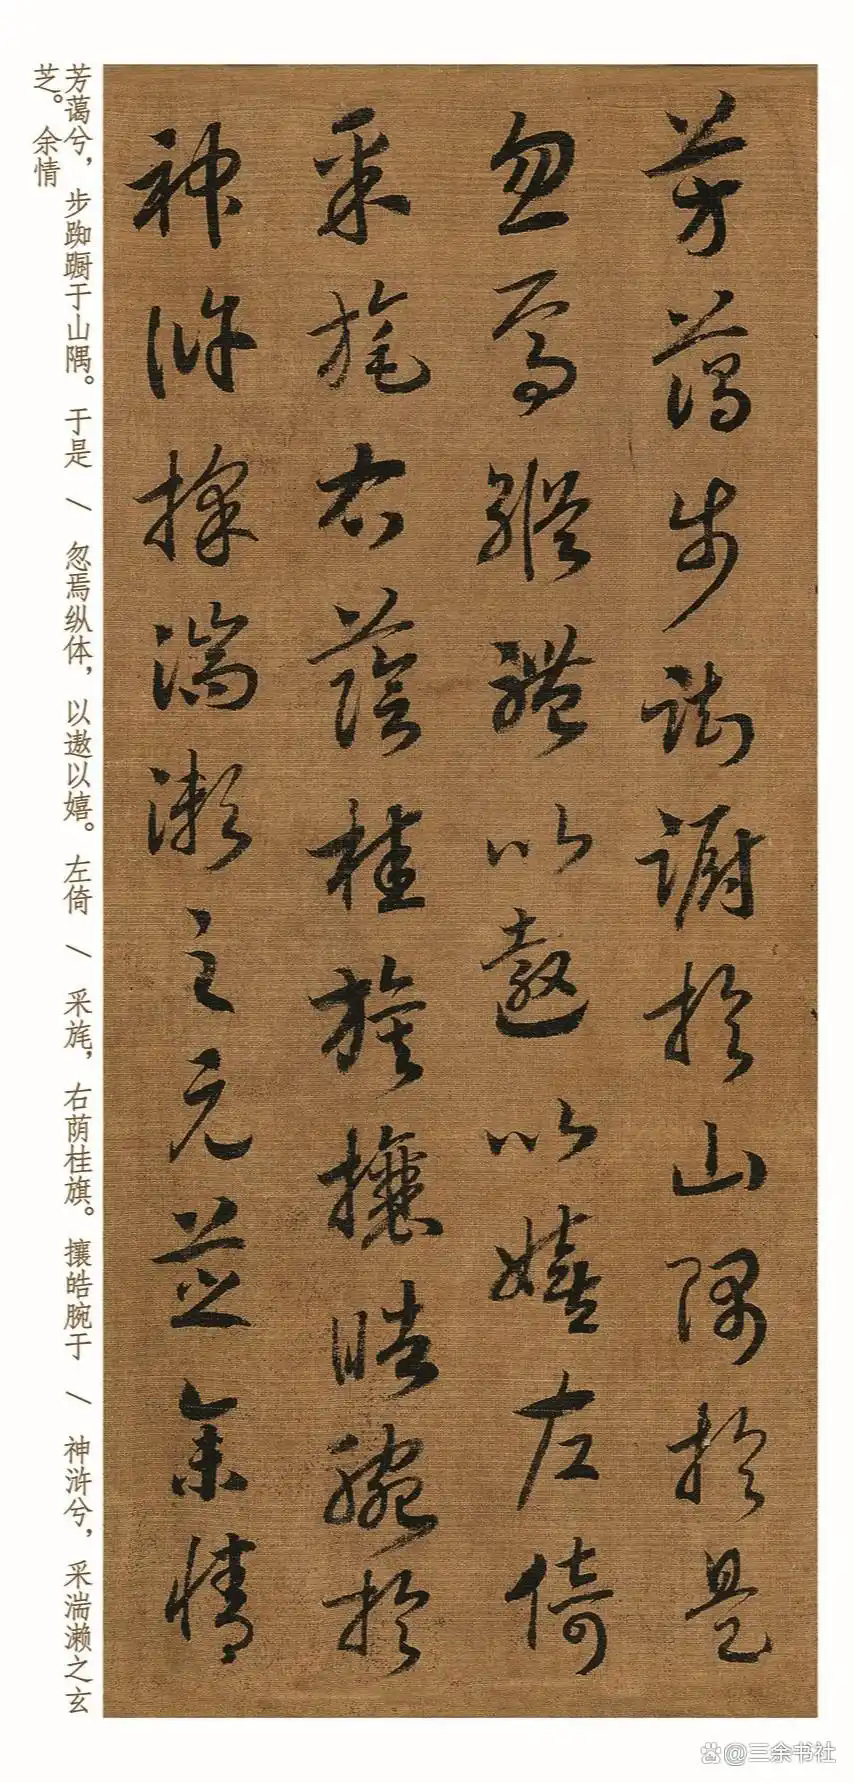 芳藹步踟蹰於山隅於是
忽焉縱體以遨以嬉左倚
采旄右蔭桂旗攘皓腕於
神滸採湍瀨之元芝余情
芳蔼兮，步踟蹰于山隅。于是 \ 忽焉纵体，以遨以嬉。左倚 \ 采旄，右荫桂旗。攘皓腕于 \ 神浒兮，采湍濑之玄
芝。余情
@三余书社